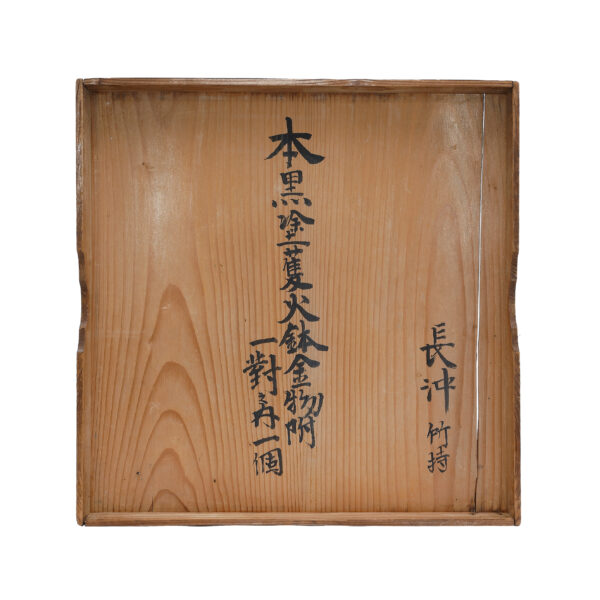 長沖 竹持
本黒塗蒦火鉢金物附
一對之内一個